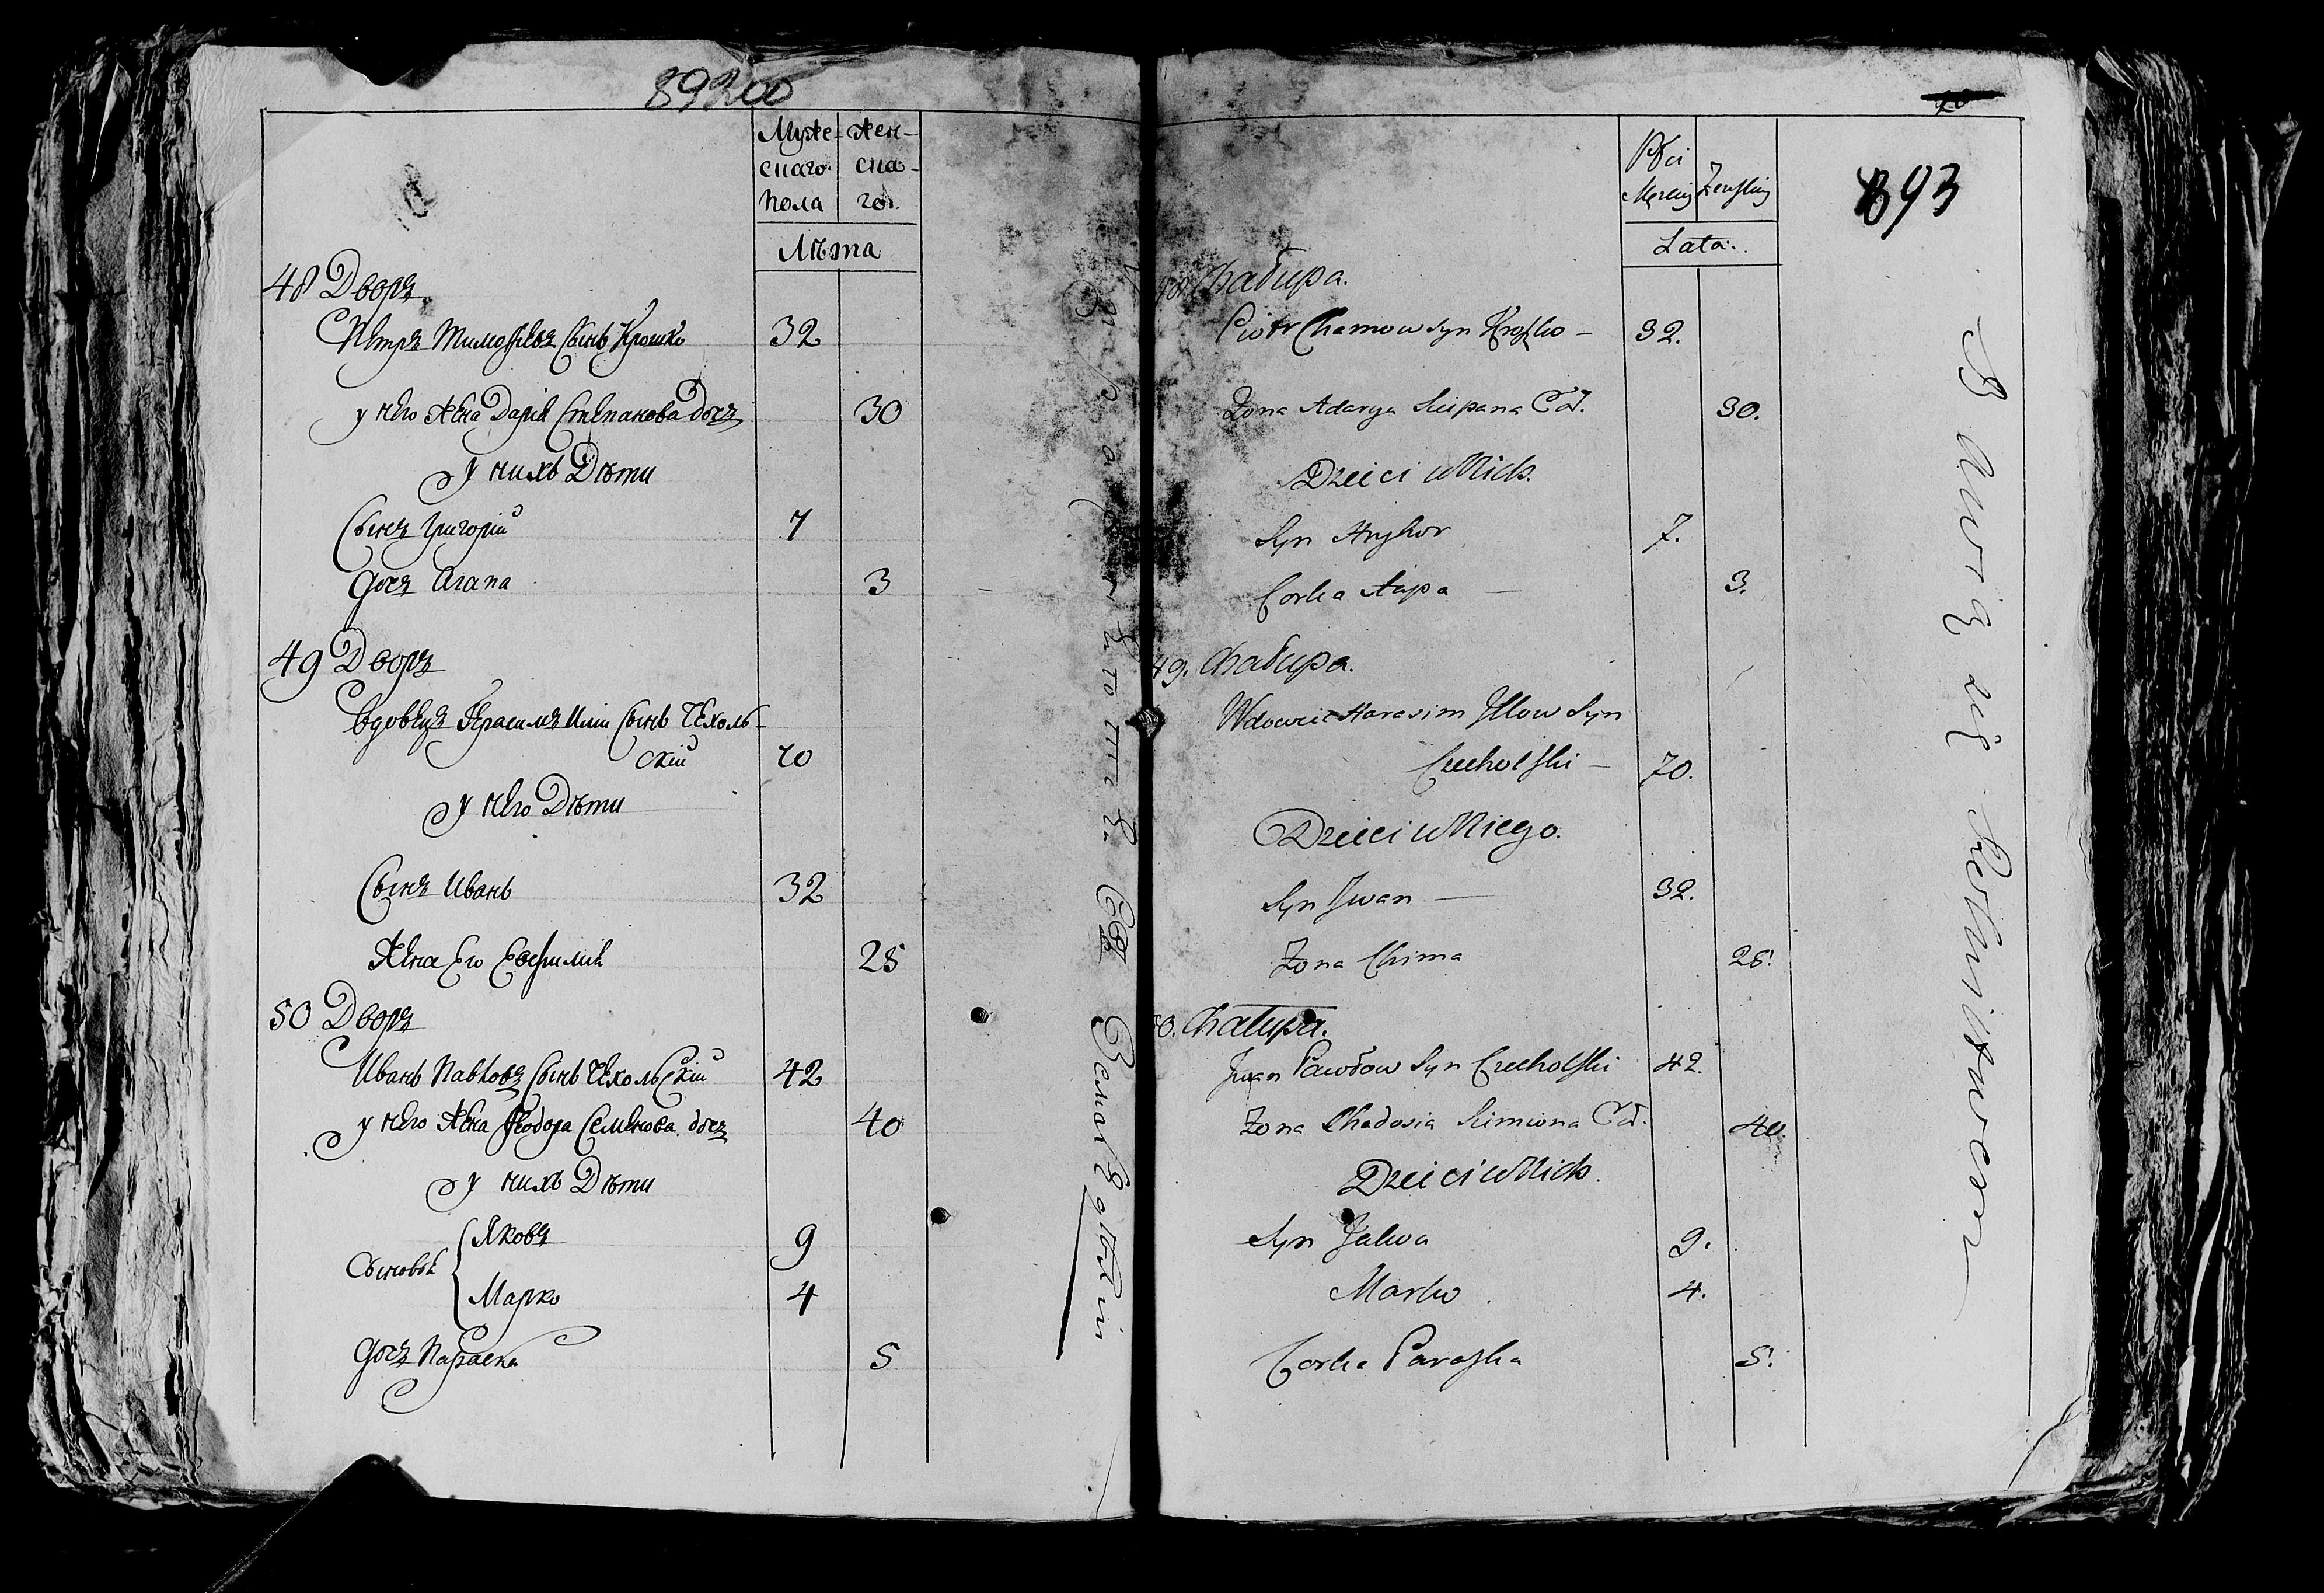 Муже- Жен-
скаго ска-
пола го.
Лѣта
48 Дворъ
Петръ Тимофѣевъ Сынъ Крошко 32
у него Жена Дарія Степанова дочь 30
у нихъ Дѣти
Сынъ Григорій 7
дочь Агапа 3
49 Дворъ
вдовецъ Герасимъ Иліи Сынъ Чехоль-
скій 70
у него Дѣти
Сынъ Иванъ 32
Жена Его Евфимія 28
50 Дворъ
Иванъ Павловъ Сынъ Чехольскій 42
у него Жена Феодора Семенова дочь 40
у нихъ Дѣти
Сыновья { Яковъ 9
Марко 4
дочь Параска 5
893
Płci
Męzkiej Zeńskiej
Lata.
48 Chałupa.
Piotr Chamow Syn Kroszko – 32.
Zona Adarya Sciepana Cor. 30.
Dzieci u Nich.
Syn Hryhor 7.
Corka Aapa — 3.
49. Chałupa.
Wdowiec Harasim Illow Syn
Czecholski – 70.
Dzieci u Niego.
Syn Jwan — 32.
Zona Chima 28.
50. Chałupa.
Jwan Pawłow Syn Czecholski 42.
Zona Chadosia Simiona Cor. 40.
Dzieci u Nich.
Syn Jakwa 9.
Marko 4.
Corka Paraska 5.